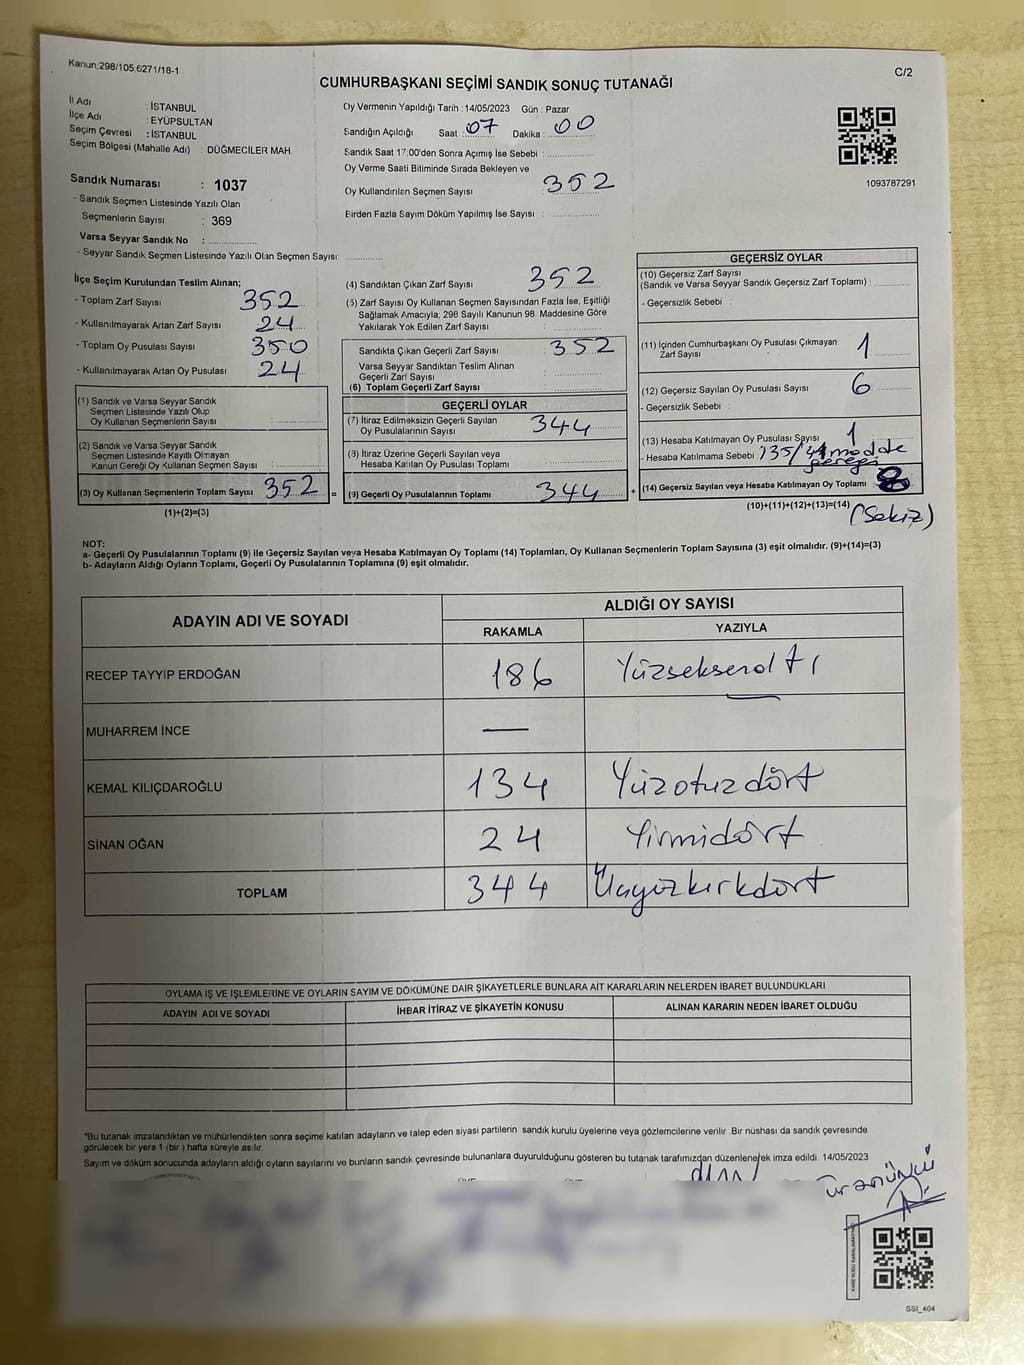 Kanun,298/105,6271/18-1
C/2
CUMHURBAŞKANI SEÇİMİ SANDIK SONUÇ TUTANAĞI
İl Adı : İSTANBUL
İlçe Adı : EYÜPSULTAN
Seçim Çevresi : İSTANBUL
Seçim Bölgesi (Mahalle Adı) : DÜĞMECİLER MAH.
Sandık Numarası : 1037
- Sandık Seçmen Listesinde Yazılı Olan
Seçmenlerin Sayısı : 369
Varsa Seyyar Sandık No :
- Seyyar Sandık Seçmen Listesinde Yazılı Olan Seçmen Sayısı:
Oy Vermenin Yapıldığı Tarih : 14/05/2023 Gün : Pazar
Sandığın Açıldığı Saat 07 Dakika : 00
Sandık Saat 17:00'den Sonra Açılmış İse Sebebi :
Oy Verme Saati Bitiminde Sırada Bekleyen ve
Oy Kullandırılan Seçmen Sayısı 352
Birden Fazla Sayım Döküm Yapılmış İse Sayısı :
1093787291
İlçe Seçim Kurulundan Teslim Alınan;
- Toplam Zarf Sayısı 352
- Kullanılmayarak Artan Zarf Sayısı 24
- Toplam Oy Pusulası Sayısı 350
- Kullanılmayarak Artan Oy Pusulası 24
(1) Sandık ve Varsa Seyyar Sandık
Seçmen Listesinde Yazılı Olup
Oy Kullanan Seçmenlerin Sayısı :
(2) Sandık ve Varsa Seyyar Sandık
Seçmen Listesinde Kayıtlı Olmayan
Kanun Gereği Oy Kullanan Seçmen Sayısı :
(3) Oy Kullanan Seçmenlerin Toplam Sayısı 352 =
(1)+(2)=(3)
(4) Sandıktan Çıkan Zarf Sayısı 352
(5) Zarf Sayısı Oy Kullanan Seçmen Sayısından Fazla İse, Eşitliği
Sağlamak Amacıyla; 298 Sayılı Kanunun 98. Maddesine Göre
Yakılarak Yok Edilen Zarf Sayısı :
Sandıkta Çıkan Geçerli Zarf Sayısı : 352
Varsa Seyyar Sandıktan Teslim Alınan
Geçerli Zarf Sayısı :
(6) Toplam Geçerli Zarf Sayısı :
GEÇERLİ OYLAR
(7) İtiraz Edilmeksizin Geçerli Sayılan
Oy Pusulalarının Sayısı : 344
(8) İtiraz Üzerine Geçerli Sayılan veya
Hesaba Katılan Oy Pusulası Toplamı :
(9) Geçerli Oy Pusulalarının Toplamı 344 +
GEÇERSİZ OYLAR
(10) Geçersiz Zarf Sayısı
(Sandık ve Varsa Seyyar Sandık Geçersiz Zarf Toplamı) :
- Geçersizlik Sebebi :
(11) İçinden Cumhurbaşkanı Oy Pusulası Çıkmayan
Zarf Sayısı 1
(12) Geçersiz Sayılan Oy Pusulası Sayısı 6
- Geçersizlik Sebebi :
(13) Hesaba Katılmayan Oy Pusulası Sayısı 1
- Hesaba Katılmama Sebebi 135/44 madde
gereği
(14) Geçersiz Sayılan veya Hesaba Katılmayan Oy Toplamı 8
(10)+(11)+(12)+(13)=(14) (Sekiz)
NOT:
a- Geçerli Oy Pusulalarının Toplamı (9) ile Geçersiz Sayılan veya Hesaba Katılmayan Oy Toplamı (14) Toplamları, Oy Kullanan Seçmenlerin Toplam Sayısına (3) eşit olmalıdır. (9)+(14)=(3)
b- Adayların Aldığı Oyların Toplamı, Geçerli Oy Pusulalarının Toplamına (9) eşit olmalıdır.
ADAYIN ADI VE SOYADI
ALDIĞI OY SAYISI
RAKAMLA YAZIYLA
RECEP TAYYİP ERDOĞAN 186 Yüzseksenaltı
MUHARREM İNCE —
KEMAL KILIÇDAROĞLU 134 Yüzotuzdört
SİNAN OĞAN 24 Yirmidört
TOPLAM 344 Üçyüzkırkdört
OYLAMA İŞ VE İŞLEMLERİNE VE OYLARIN SAYIM VE DÖKÜMÜNE DAİR ŞİKAYETLERLE BUNLARA AİT KARARLARIN NELERDEN İBARET BULUNDUKLARI
ADAYIN ADI VE SOYADI İHBAR İTİRAZ VE ŞİKAYETİN KONUSU ALINAN KARARIN NEDEN İBARET OLDUĞU
"Bu tutanak imzalandıktan ve mühürlendikten sonra seçime katılan adayların ve talep eden siyasi partilerin sandık kurulu üyelerine veya gözlemcilerine verilir. Bir nüshası da sandık çevresinde
görülecek bir yere 1 (bir) hafta süreyle asılır.
Sayım ve döküm sonucunda adayların aldığı oyların sayılarını ve bunların sandık çevresinde bulunanlara duyurulduğunu gösteren bu tutanak tarafımızdan düzenlenerek imza edildi. 14/05/2023
SSI_404